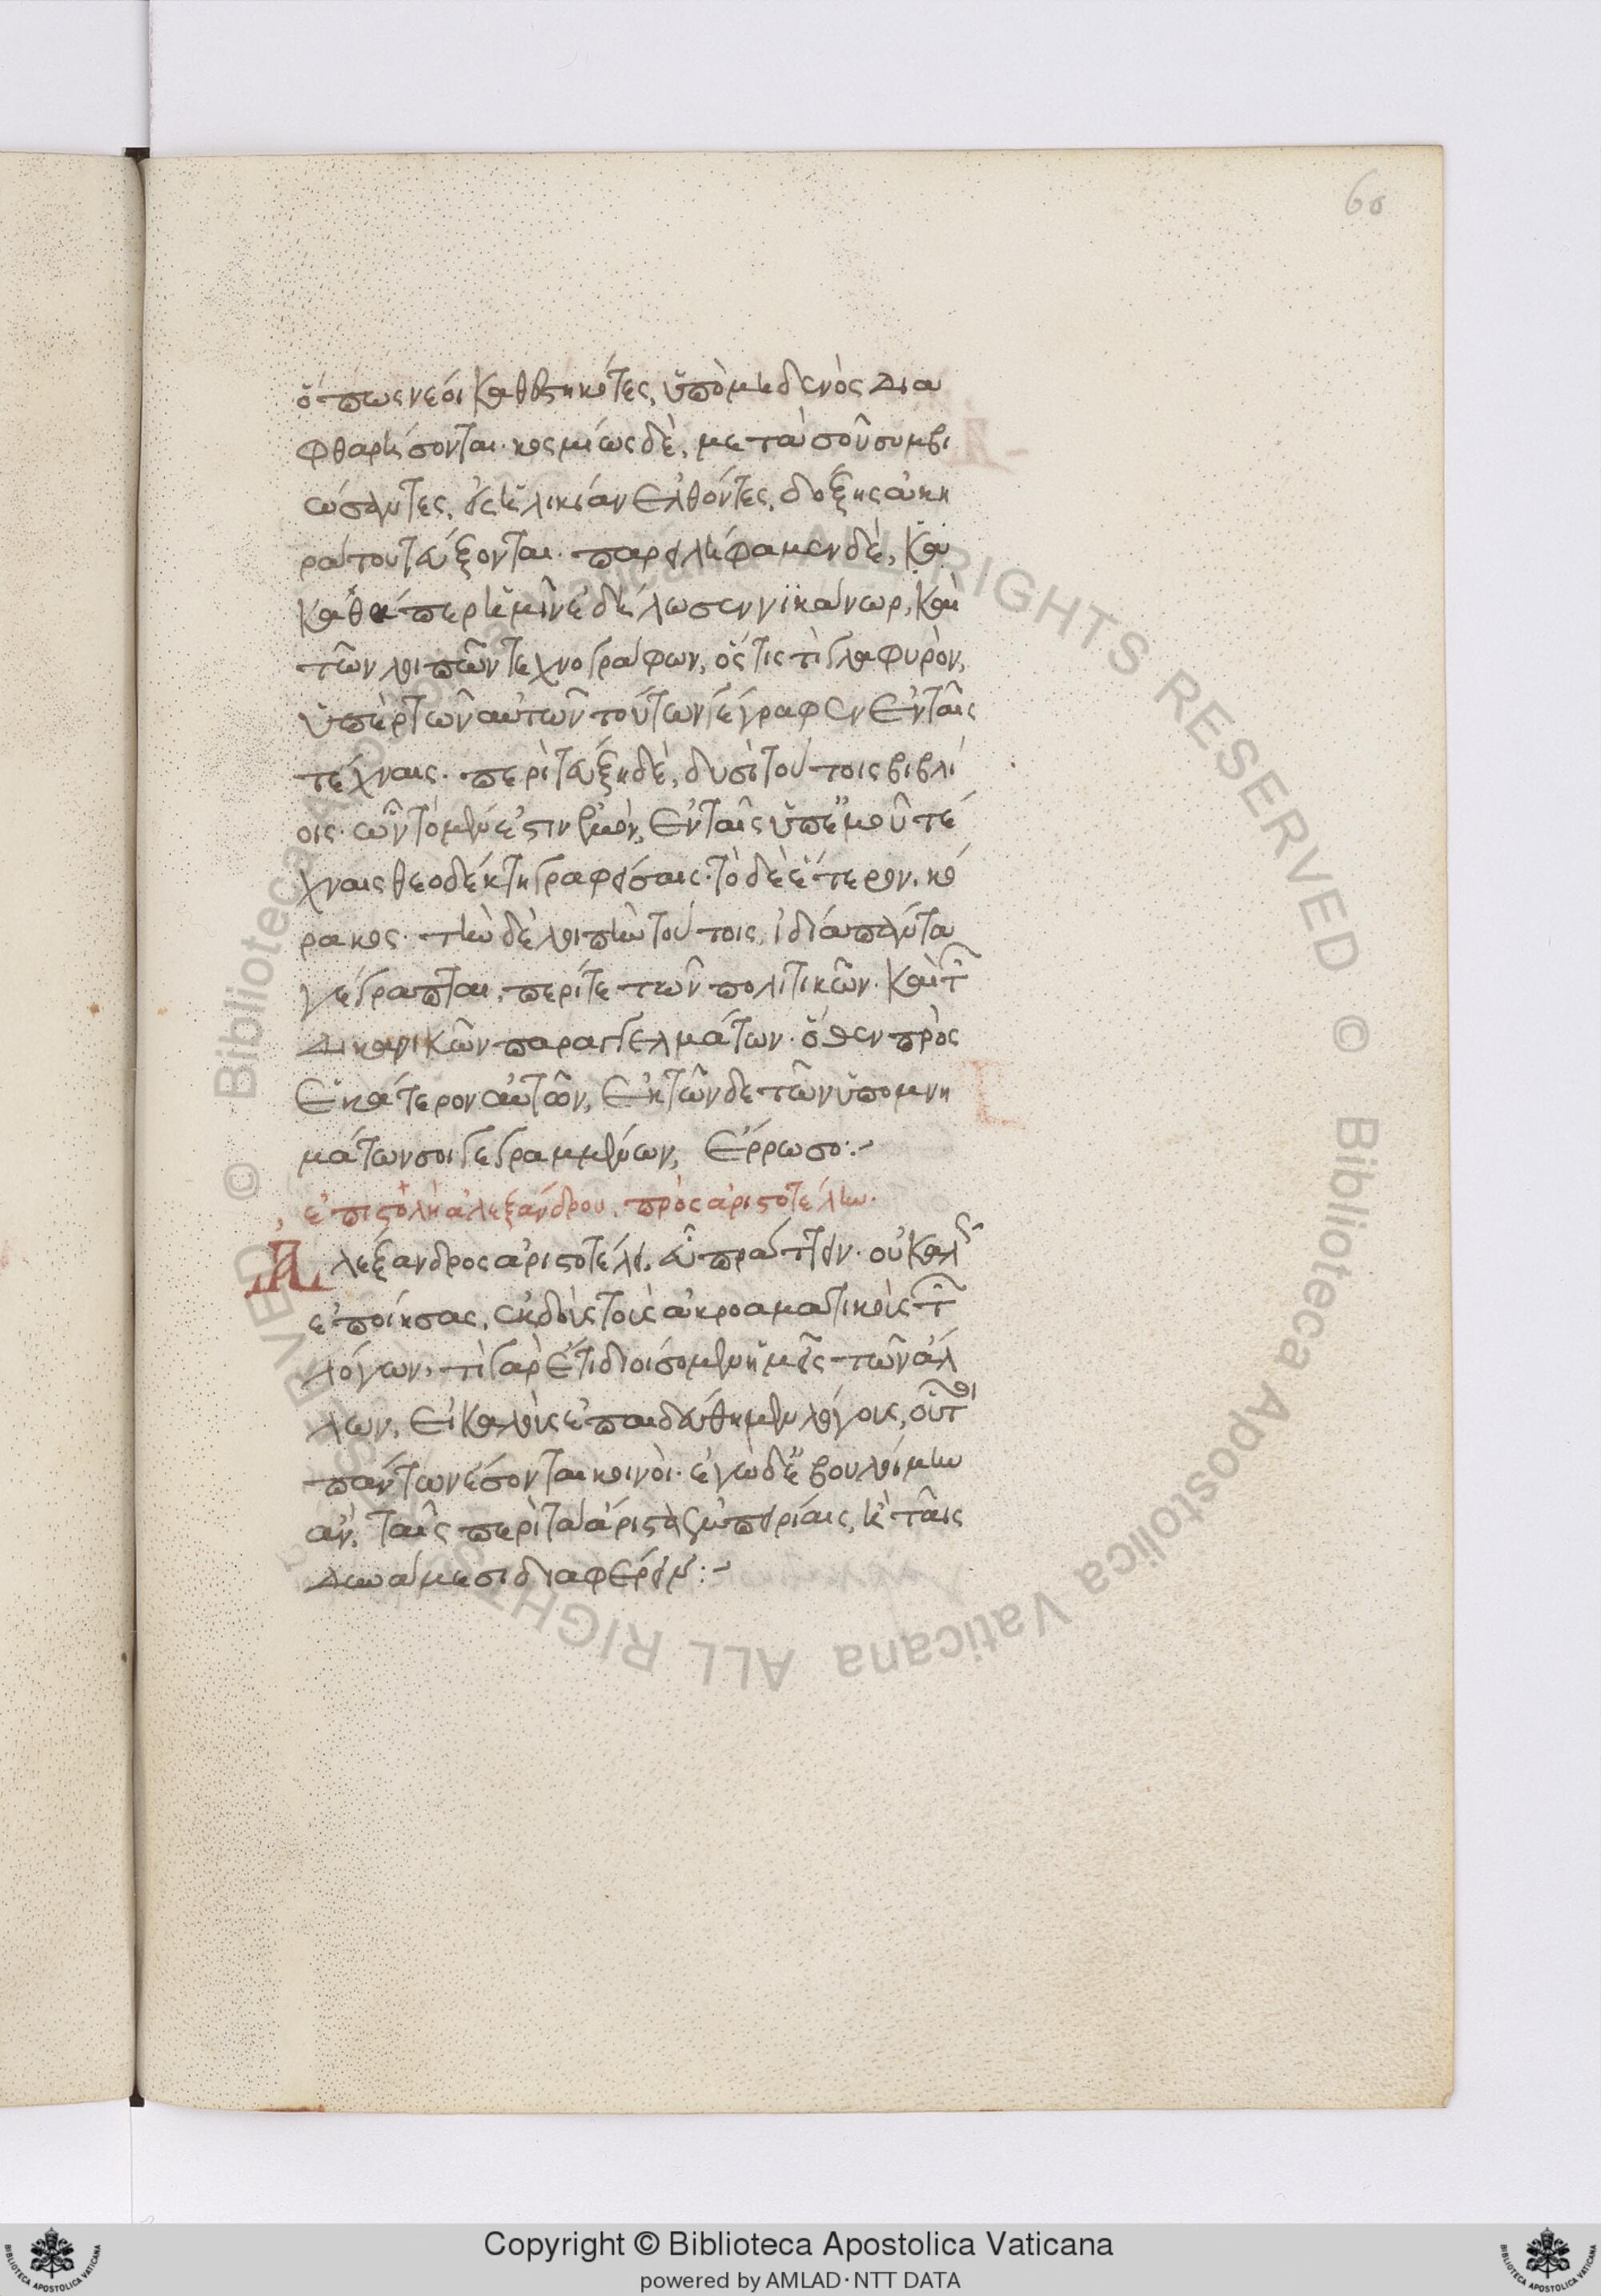 60
ὅπως νέοι καθεστηκότες, ὑπὸ μηδενὸς δια
φθαρήσονται. κοσμίως δὲ, μετὰ σοῦ συμβι
ώσαντες, εἰς ἡλικίαν ἐλθόντες, δόξης ἀκη
ράτου τεύξονται. παρειλήφαμεν δὲ, καὶ
καθάπερ ἡμῖν ἐδήλωσεν νικάνωρ, καὶ
τῶν λοιπῶν τεχνογράφων, ὅστις τὶ γλαφυρὸν,
ὑπὲρ τῶν αὐτῶν τούτων γέγραφεν ἐν ταῖς
τέχναις. περιτεύξη δὲ, δυσὶ τούτοις βιβλί
οις. ὧν τὸ μέν ἐστιν ἐμὸν, ἐν ταῖς ὑπ' ἐμοῦ τέ
χναις θεοδέκτη γραφείσαις. τὸ δὲ ἕτερον, κό
ρακος. τὴν δὲ λοιπὴν τούτοις, ἰδία πάντα
γέγραπται, περί τε τῶν πολιτικῶν. καὶ τῶν
δικανικῶν παραγγελμάτων. ὅθεν πρὸς
ἑκάτερον αὐτῶν, ἐκ τῶνδε τῶν ὑπομνη
μάτων σοι γεγραμμένων, ἔρρωσο:~
ἐπιστολὴ ἀλεξάνδρου, πρὸς ἀριστοτέλην.
Ἀλέξανδρος ἀριστοτέλει, εὖ πράττειν. οὐ καλῶς
ἐποίησας, ἐκδοὺς τοὺς ἀκροαματικοὺς τῶν
λόγων, τὶ γὰρ ἔτι διοίσομεν ἡμεῖς τῶν ἄλ
λων, εἰ καθ' οὓς ἐπαιδεύθημεν λόγους, οὗτοι
πάντων ἔσονται κοινοὶ. ἐγὼ δὲ βουλοίμην
ἂν, ταῖς περὶ τὰ ἄριστα ἐμπειρίαις, ἢ ταῖς
δυνάμεσι διαφέρειν:~
Copyright © Biblioteca Apostolica Vaticana
powered by AMLAD·NTT DATA
© Biblioteca Apostolica Vaticana ALL RIGHTS RESERVED © Biblioteca Apostolica Vaticana ALL RIGHTS RESERVED